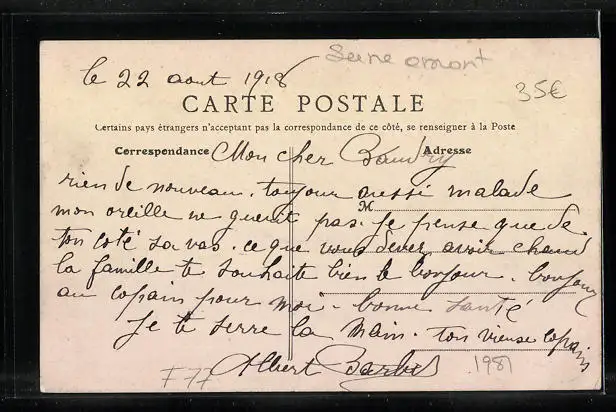 Seine amont
le 22 aout 1918
35€
CARTE POSTALE
Certains pays étrangers n'acceptant pas la correspondance de ce côté, se renseigner à la Poste
Correspondance
Adresse
Mon cher Baudry
rien de nouveau. toujour aussi malade
M
mon oreille ne guerit pas. je pense que de
ton coté sa vas. ce que vous devez avoir chaud
la famille te souhaite bien le bonjour. bonjour
au copain pour moi. bonne santé
Je te serre la main. ton vieuse copain
Albert
F77
1981